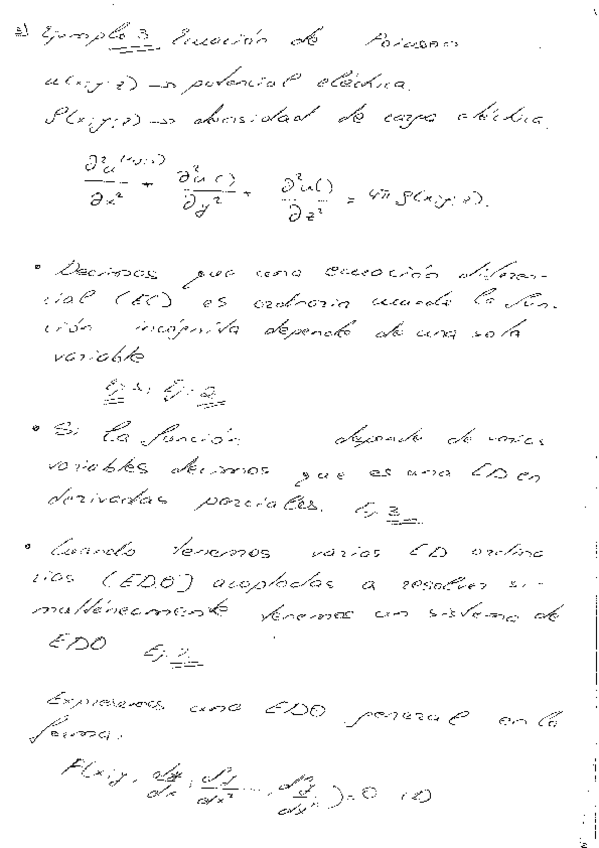 Ejemplo 3 Ecuación de Poisson
u(x;y;z) → potencial eléctrico.
ρ(x;y;z) → densidad de carga eléctrica.
∂²u(x;y;z)/∂x² + ∂²u()/∂y² + ∂²u()/∂z² = 4π ρ(x;y;z).
• Decimos que una ecuación diferen-
cial (EC) es ordinaria cuando la fun-
ción incógnita depende de una sola
variable
Ej: Ej: 2
• Si la función depende de varias
variables decimos que es una ED en
derivadas parciales. Ej 3
• Cuando tenemos varias ED ordina
rias (EDO) acopladas a resolver si-
multáneamente tenemos un sistema de
EDO Ej:
Expresamos una EDO general en la
forma:
F(x;y, dy/dx; d²y/dx² ..., dⁿy/dxⁿ) = 0